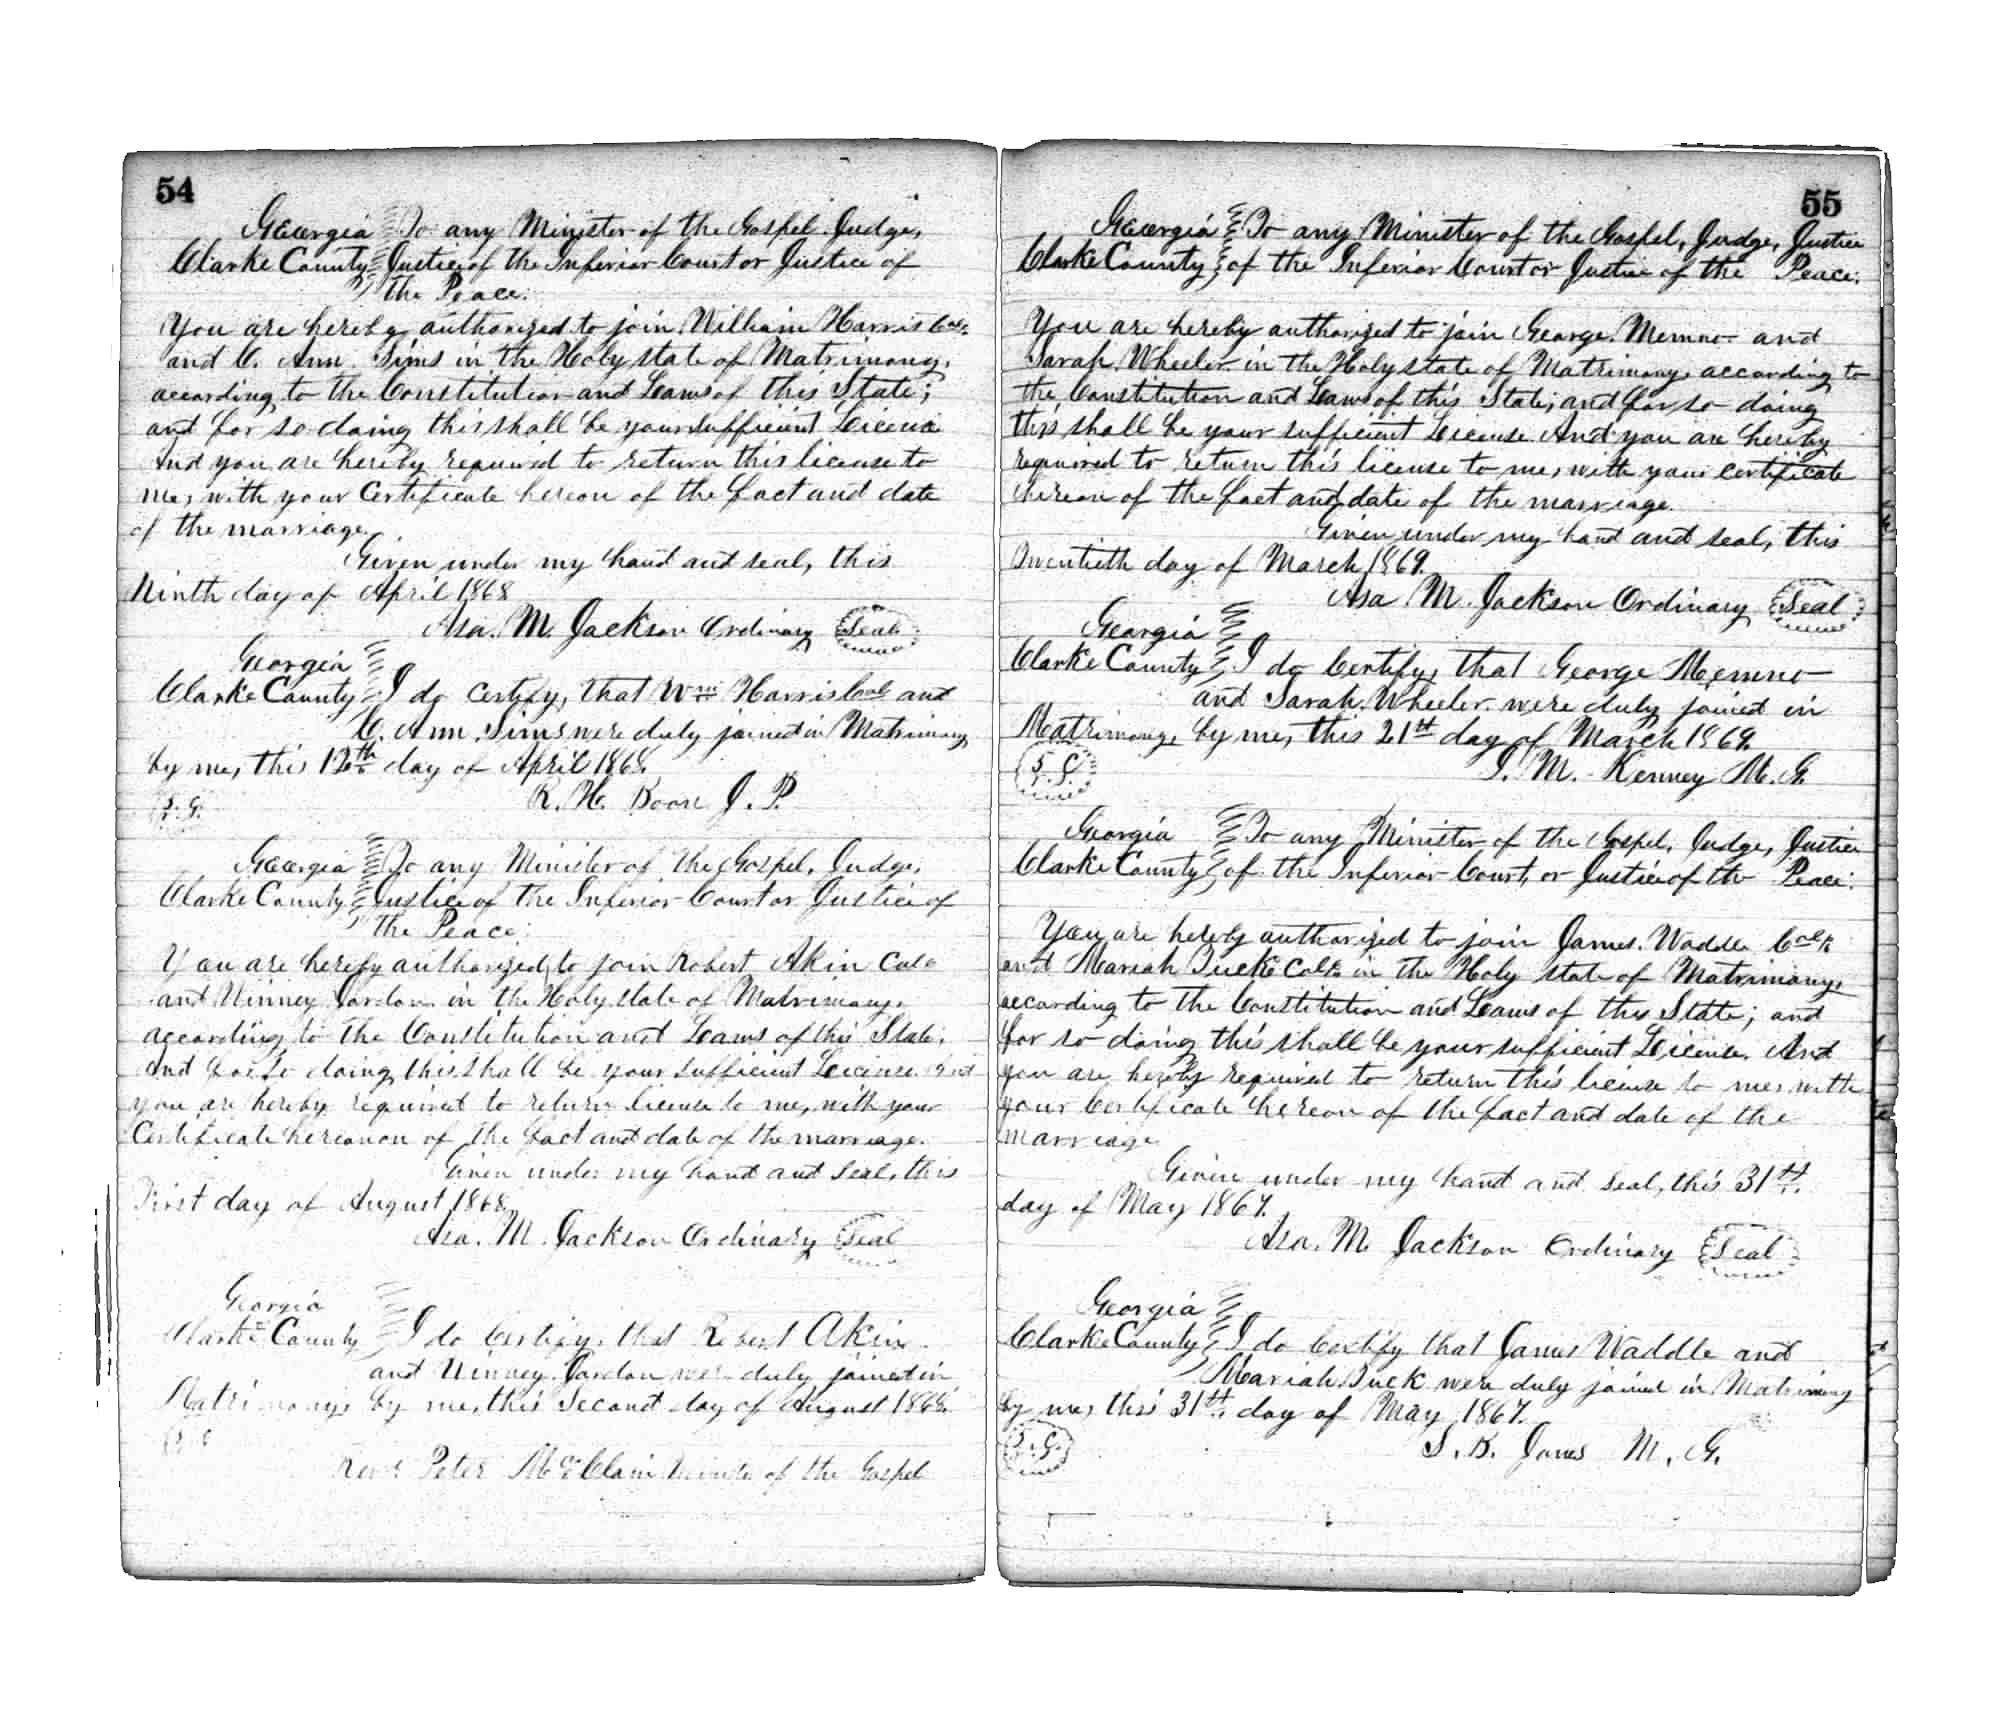 54
Georgia To any Minister of the Gospel Judge,
Clarke County Justice of the Inferior Court or Justice of
the Peace:
You are hereby authorized to join William Harris Cold
and C. Ann Sims in the Holy state of Matrimony,
according to the Constitution and Laws of this State;
and for so doing this shall be your sufficient License
And you are hereby required to return this license to
me, with your Certificate hereon of the fact and date
of the marriage.
Given under my hand and seal, this
Ninth day of April 1868
Asa. M. Jackson Ordinary Seal
Georgia
Clarke County I do certify, that Wm Harris Cold and
C. Ann Sims were duly joined in Matrimony
by me, this 12th day of April 1868.
R. H. Boon J. P.
Georgia To any Minister of the Gospel, Judge,
Clarke County Justice of the Inferior Court or Justice of
the Peace:
You are hereby authorized, to join Robert Akin Cold
and Ninney Jordon in the Holy state of Matrimony,
according to the Constitution and Laws of this State.
And for so doing this shall be your sufficient License. And
you are hereby required to return license to me, with your
Certificate hereonon of the fact and date of the marriage.
Given under my hand and seal, this
First day of August 1868
Asa. M. Jackson Ordinary Seal
Georgia
Clarke County I do Certify, that Robert Akin
and Ninney Jordon were duly joined in
Matrimony, by me, this Second day of August 1868.
Revd Peter McClain Minister of the Gospel
55
Georgia To any Minister of the Gospel, Judge, Justice
Clarke County of the Inferior Court or Justice of the Peace:
You are hereby authorized to join George Memno and
Sarah Wheeler in the Holy state of Matrimony, according to
the Constitution and Laws of this State; and for so doing
this shall be your sufficient License. And you are hereby
required to return this license to me, with your certificate
hereon of the fact and date of the marriage.
Given under my hand and seal, this
Twentieth day of March 1869.
Asa M. Jackson Ordinary Seal
Georgia
Clarke County I do Certify, that George Memno
and Sarah Wheeler were duly joined in
Matrimony, by me, this 21st day of March 1869.
I. M. Kenney M. G.
Georgia To any Minister of the Gospel, Judge, Justice
Clarke County of the Inferior Court, or Justice of the Peace:
You are hereby authorized to join James Waddle Cold
and Mariah Tuck Cold in the Holy state of Matrimony,
according to the Constitution and Laws of this State; and
for so doing this shall be your sufficient License. And
you are hereby required to return this license to me, with
your Certificate hereon of the fact and date of the
marriage
Given under my hand and seal, this 31st
day of May 1867.
Asa. M. Jackson Ordinary Seal
Georgia
Clarke County I do Certify that James Waddle and
Mariah Tuck were duly joined in Matrimony
by me, this 31st day of May 1867.
S. B. Jones M. G.